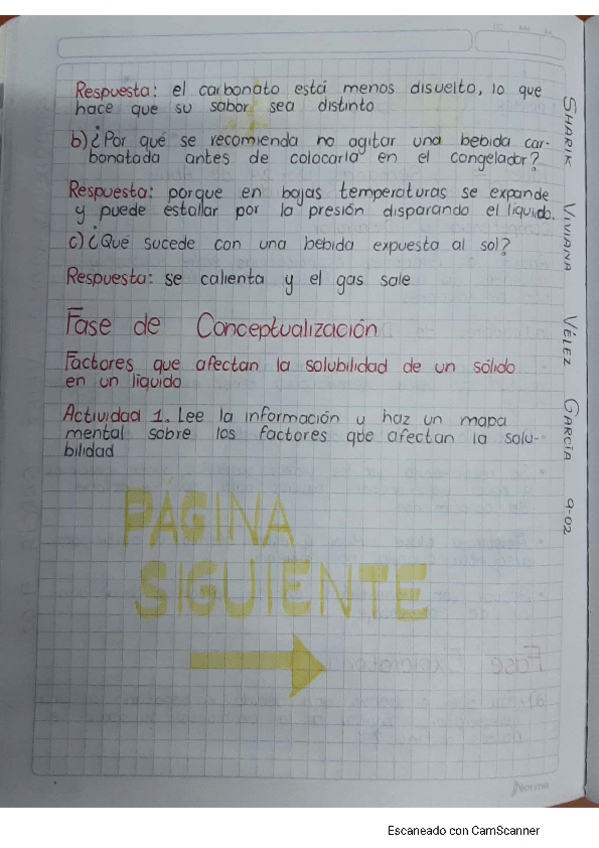 Respuesta: el carbonato está menos disuelto, lo que
hace que su sabor sea distinto
b) ¿Por qué se recomienda no agitar una bebida car-
bonatada antes de colocarla en el congelador?
Respuesta: porque en bajas temperaturas se expande
y puede estallar por la presión disparando el líquido.
c) ¿Qué sucede con una bebida expuesta al sol?
Respuesta: se calienta y el gas sale
Fase de Conceptualización
Factores que afectan la solubilidad de un sólido
en un líquido
Actividad 1. Lee la información y haz un mapa
mental sobre los factores que afectan la solu-
bilidad
PÁGINA
SIGUIENTE
SHARIK VIVIANA VÉLEZ GARCÍA 9-02
Norma
Escaneado con CamScanner